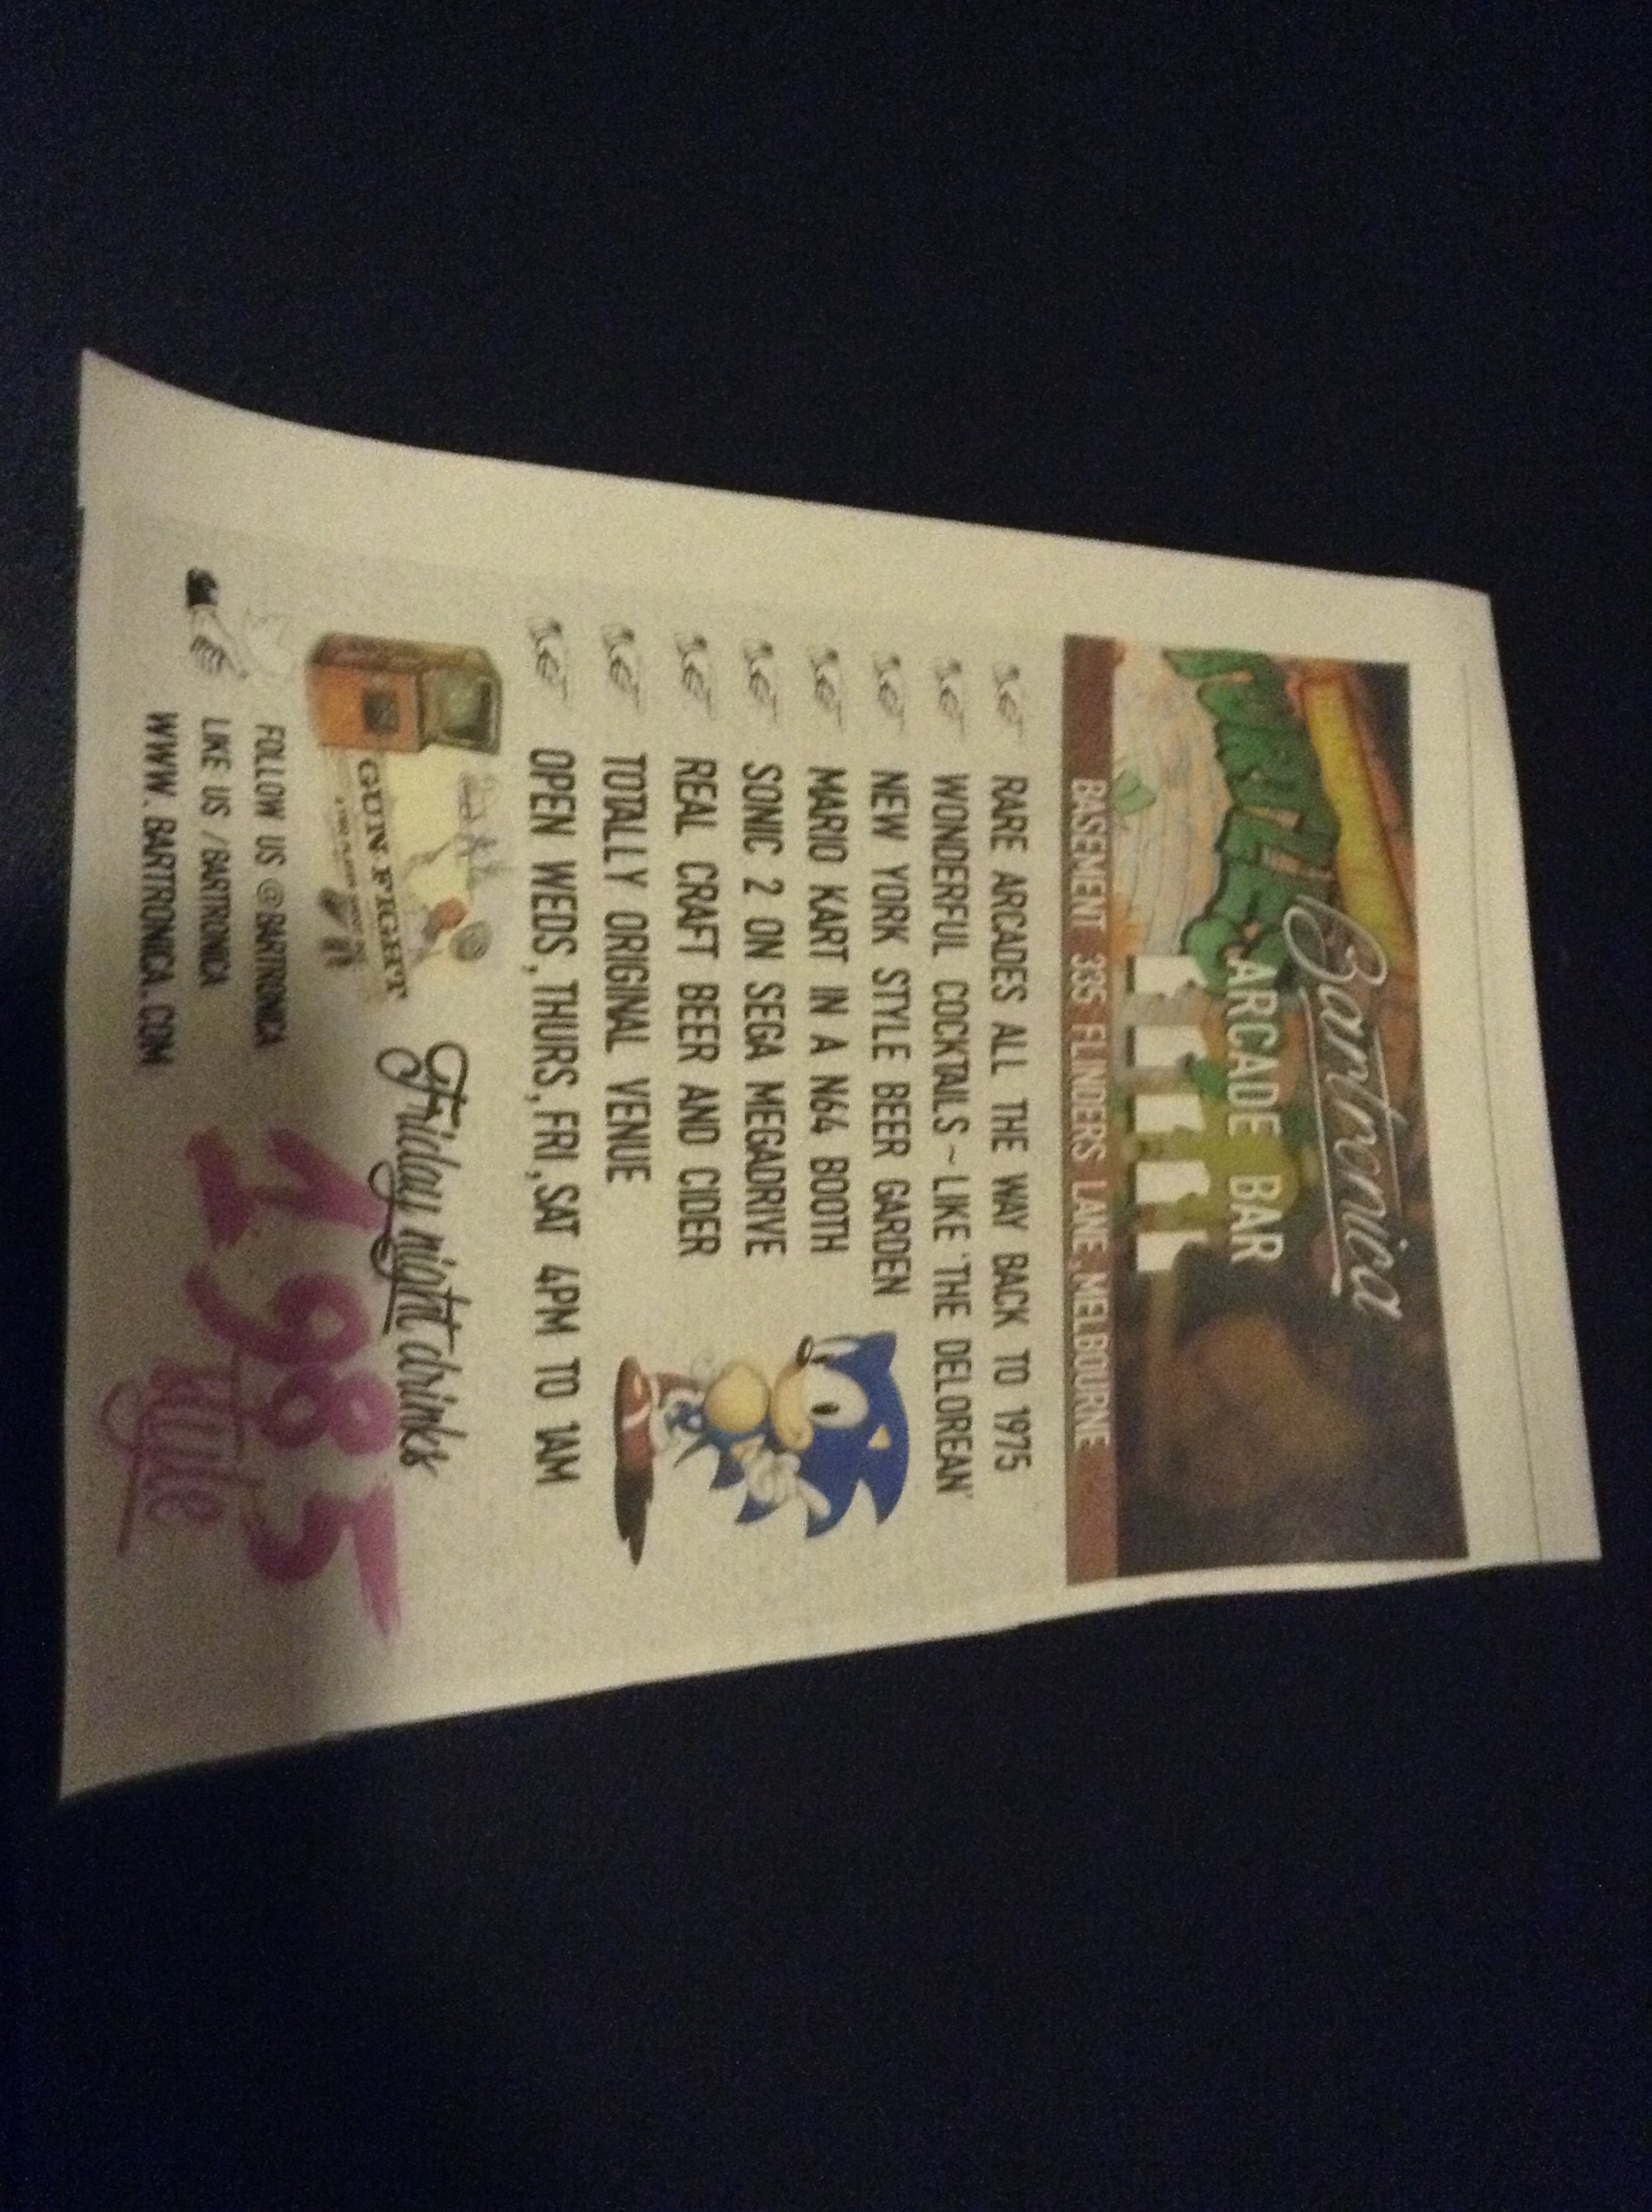 Bartronica
ARCADE BAR
BASEMENT 335 FLINDERS LANE, MELBOURNE
RARE ARCADES ALL THE WAY BACK TO 1975
WONDERFUL COCKTAILS ~ LIKE 'THE DELOREAN'
NEW YORK STYLE BEER GARDEN
MARIO KART IN A N64 BOOTH
SONIC 2 ON SEGA MEGADRIVE
REAL CRAFT BEER AND CIDER
TOTALLY ORIGINAL VENUE
OPEN WEDS, THURS, FRI, SAT 4PM TO 1AM
GUN FIGHT
Friday night drinks
1985
style
FOLLOW US @BARTRONICA
LIKE US /BARTRONICA
WWW.BARTRONICA.COM